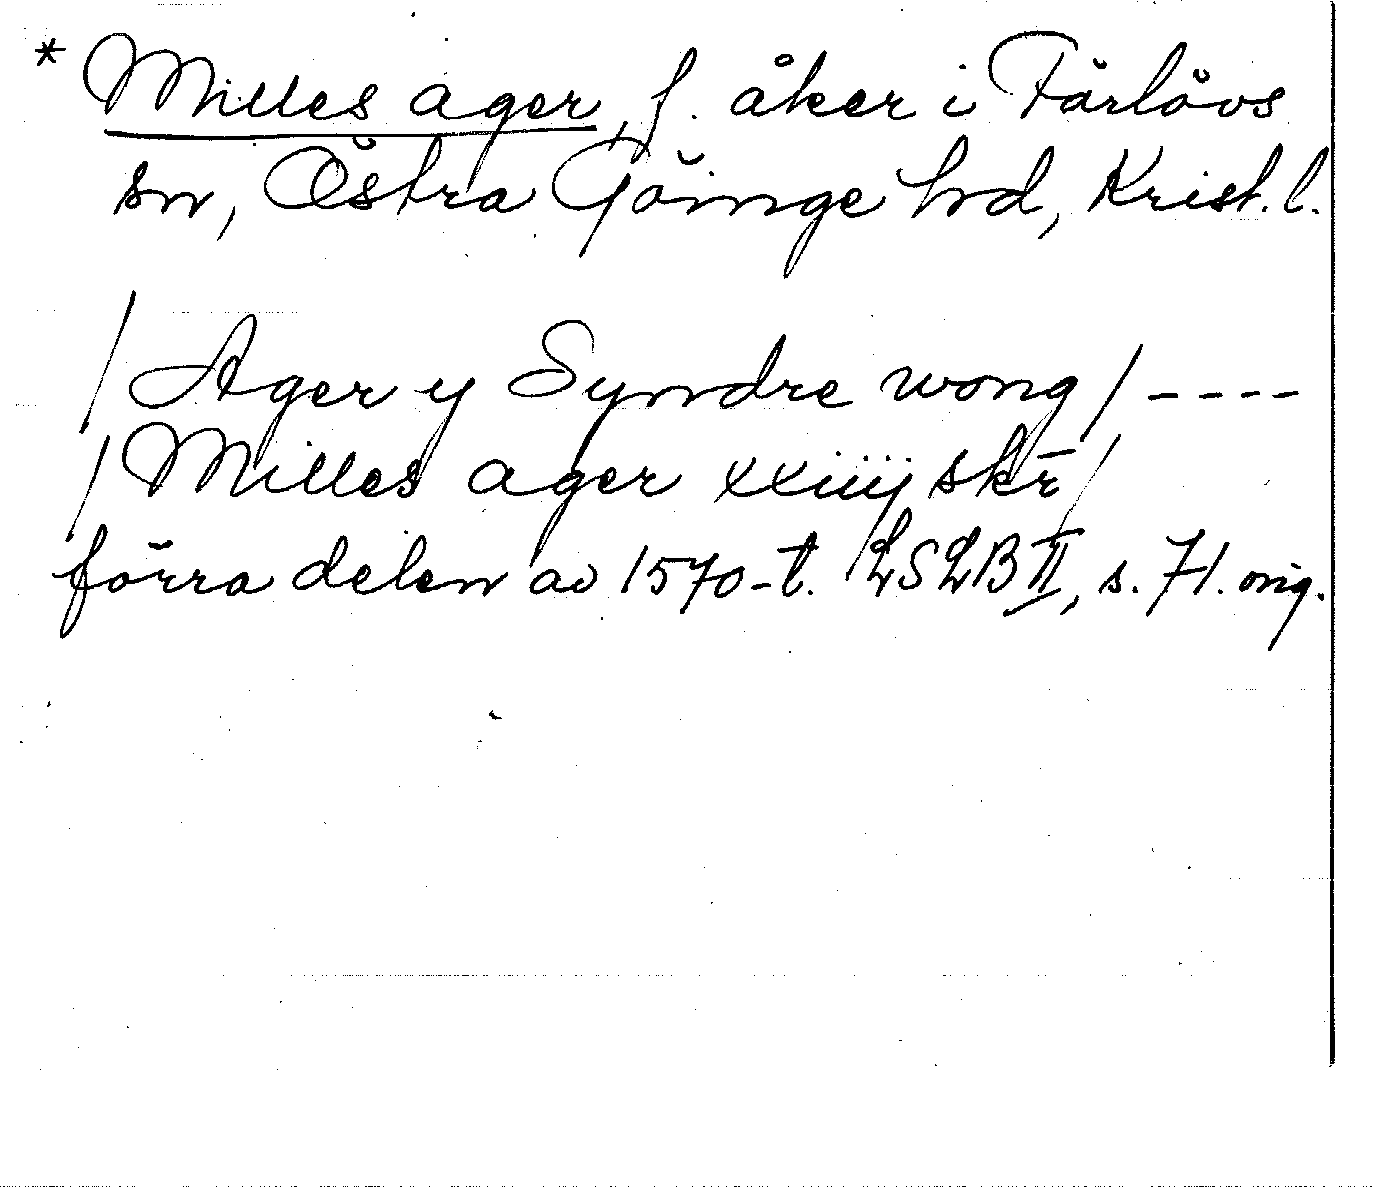 * Milles ager, f. åker i Färlövs
sn, Östra Göinge hd, Krist. l.
/Ager y Syndre wong/ ----
/Milles ager xxiiij skr̄/
förra delen av 1570-t. LSLB II, s. 71. orig.